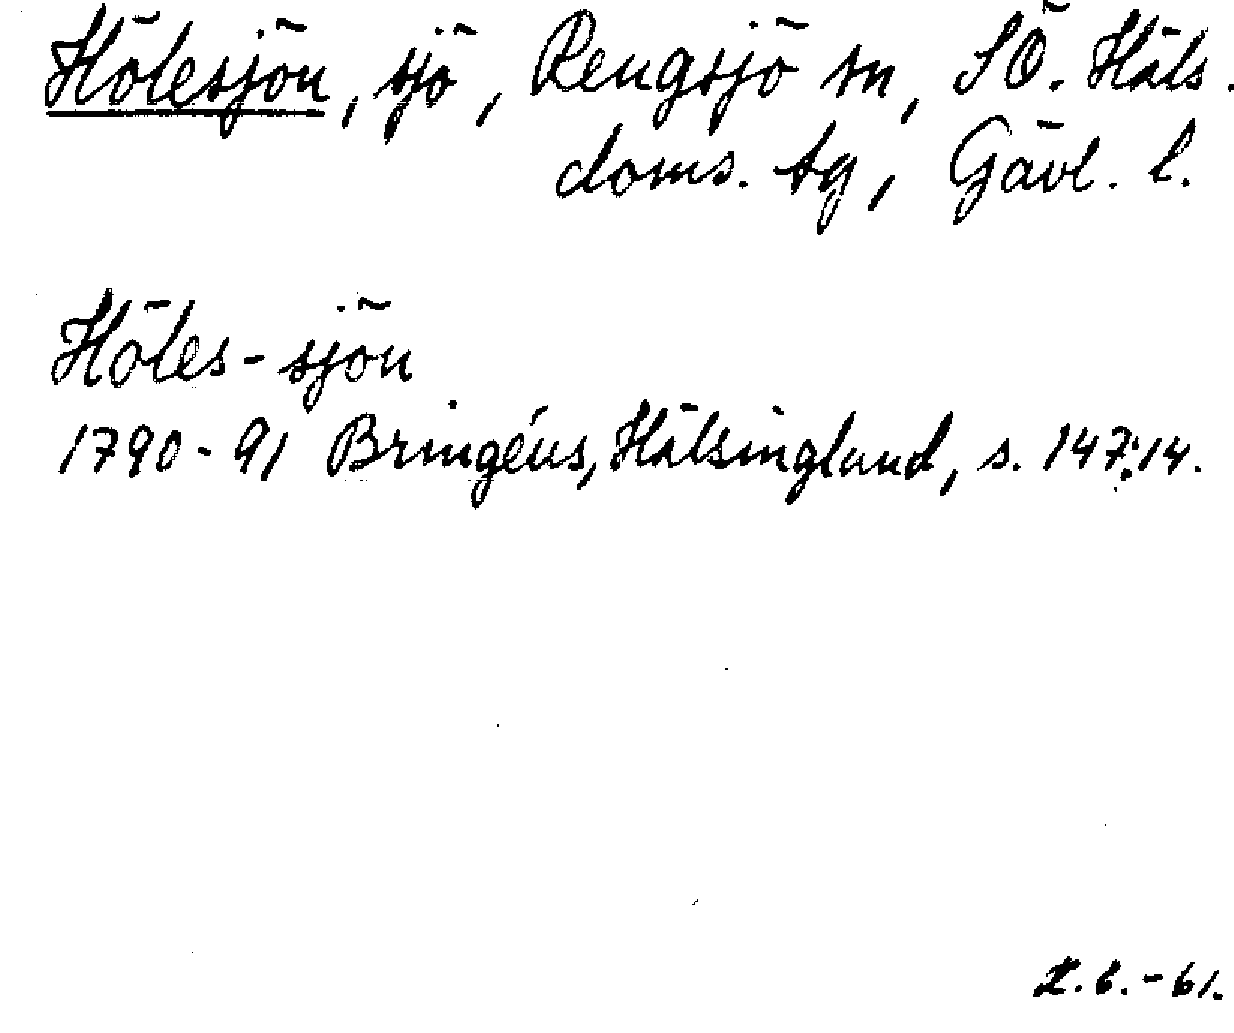 Hölesjön, sjö, Rengsjö sn, SÖ. Häls.
doms. tg, Gävl. l.
Höles-sjön
1790-91 Bringéus, Hälsingland, s. 147:14.
L.B.-61.